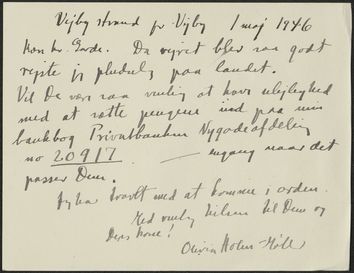 Vejby strand pr Vejby 1 maj 1946
Kære hr. Garde. Da vejret blev saa godt
rejste jeg pludselig paa landet.
Vil De være saa venlig at have ulejlighed
med at sætte pengene ind paa min
bankbog Privatbanken Nygade afdeling
no 20917 — engang naar det
passer Dem.
Jeg har travlt med at komme i orden.
Med venlig hilsen til Dem og
Deres kone!
Olivia Holm-Møller